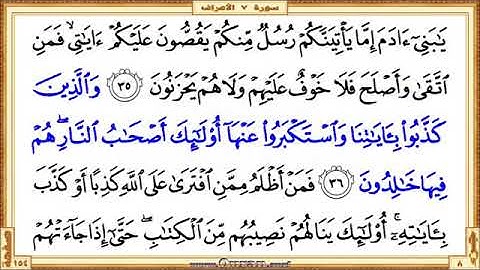 سورة ٧ الأعراف
يَٰبَنِىٓ ءَادَمَ إِمَّا يَأْتِيَنَّكُمْ رُسُلٌ مِّنكُمْ يَقُصُّونَ عَلَيْكُمْ ءَايَٰتِى فَمَنِ
ٱتَّقَىٰ وَأَصْلَحَ فَلَا خَوْفٌ عَلَيْهِمْ وَلَا هُمْ يَحْزَنُونَ ٣٥ وَٱلَّذِينَ
كَذَّبُوا۟ بِـَٔايَٰتِنَا وَٱسْتَكْبَرُوا۟ عَنْهَآ أُو۟لَٰٓئِكَ أَصْحَٰبُ ٱلنَّارِ ۖ هُمْ
فِيهَا خَٰلِدُونَ ٣٦ فَمَنْ أَظْلَمُ مِمَّنِ ٱفْتَرَىٰ عَلَى ٱللَّهِ كَذِبًا أَوْ كَذَّبَ
بِـَٔايَٰتِهِۦٓ ۚ أُو۟لَٰٓئِكَ يَنَالُهُمْ نَصِيبُهُم مِّنَ ٱلْكِتَٰبِ ۖ حَتَّىٰٓ إِذَا جَآءَتْهُمْ
٨
صفحة ١٥٤